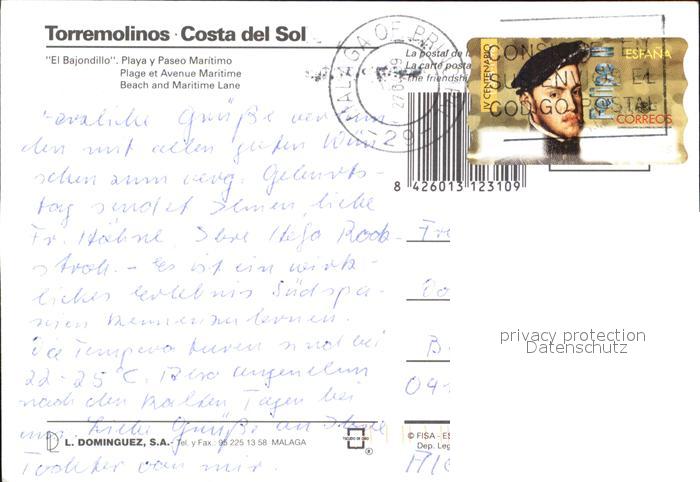 Torremolinos · Costa del Sol
"El Bajondillo". Playa y Paseo Marítimo
Plage et Avenue Maritime
Beach and Maritime Lane
La postal de la
La carte posta
The friendshi
MALAGA CE PR
29
IV CENTENARIO
Felipe II
ESPAÑA
CORREOS
CODIGO POSTAL
8 426013 123109
Herzliche Grüße verbun-
den mit allen guten Wün-
schen zum verg. Geburts-
tag sendet Ihnen, liebe
Fr. Hähne, Ihre Helga
stroh. - Es ist ein wirk-
liches Erlebnis Südspa-
nien kennenzulernen.
Die Temperaturen sind bei
22-25°C. Also angenehm
nach den kalten Tagen bei
uns. Liebe Grüße an Ihre
Tochter von mir.
Fr
04
privacy protection
Datenschutz
L. DOMINGUEZ, S.A. - Tel. y Fax.: 95 225 13 58 MALAGA
© FISA - ES
Dep. Leg